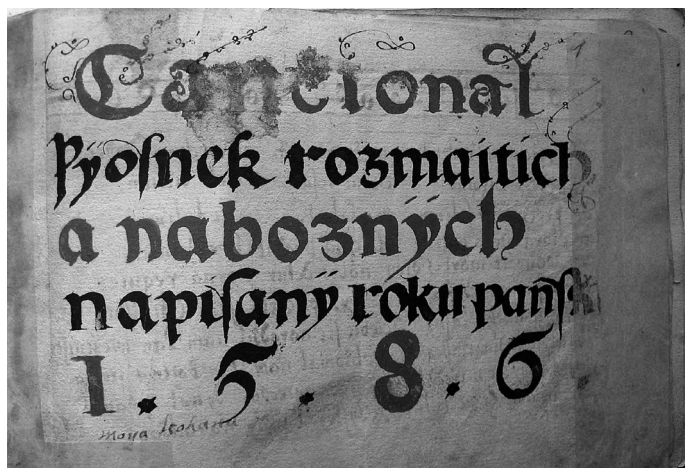 Cantional
Pÿosnek rozmaitich
a naboznÿch
napisanÿ roku pańsk
1. 5. 8. 6
moya kochana